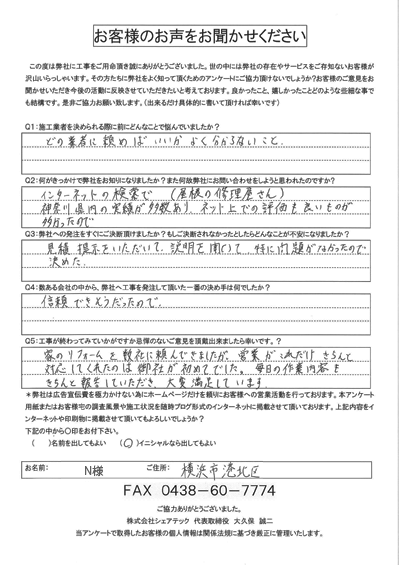 お客様のお声をお聞かせください
この度は弊社に工事をご用命頂き誠にありがとうございました。世の中には弊社の存在やサービスをご存知ないお客様が
沢山いらっしゃいます。その方たちに弊社をよく知って頂くためのアンケートにご協力頂けないでしょうか？お客様のご意見をお
聞かせいただき今後の活動に反映させていただきたいと考えております。良かったこと、嬉しかったことどのような些細な事で
も結構です。是非ご協力お願い致します。（出来るだけ具体的に書いて頂ければ幸いです）
Q1：施工業者を決められる際に前にどんなことで悩んでいましたか？
どの業者に頼めばいいかよく分からないこと。
Q2：何がきっかけで弊社をお知りになりましたか？また何故弊社にお問い合わせをしようと思われたのですか？
インターネットの検索で（屋根の修理屋さん）
神奈川県内の実績が多数あり、ネット上での評価も良いものが
多かったので
Q3：弊社への発注をすぐにご決断頂けましたか？もしご決断されなかったとしたらどんなことが不安になりましたか？
見積提示をいただいて、説明を聞いて、特に問題がなかったので
決めた。
Q4：数ある会社の中から、弊社へ工事を発注して頂いた一番の決め手は何でしたか？
信頼できそうだったので。
Q5：工事が終わってみていかがですか忌憚のないご意見を頂戴出来ましたら幸いです。
家のリフォームを数社に頼んできましたが、営業がこれだけきちんと
対応してくれたのは御社が初めてでした。毎日の作業内容を
きちんと報告していただき、大変満足しています。
＊弊社は広告宣伝費を極力かけない為にホームページだけを頼りにお客様への営業活動を行っております。本アンケート
用紙またはお客様宅の調査風景や施工状況を随時ブログ形式のインターネットに掲載させて頂いております。上記内容をイ
ンターネットや印刷物に掲載させて頂いてもよろしいでしょうか？
下記の中から〇印をお付下さい。
（　）名前を出してもよい　（〇）イニシャルなら出してもよい
お名前： N様 ご住所： 横浜市港北区
FAX 0438-60-7774
ご協力ありがとうございました。
株式会社シェアテック 代表取締役 大久保 誠二
当アンケートで取得したお客様の個人情報は関係法規に基づき厳正に管理いたします。